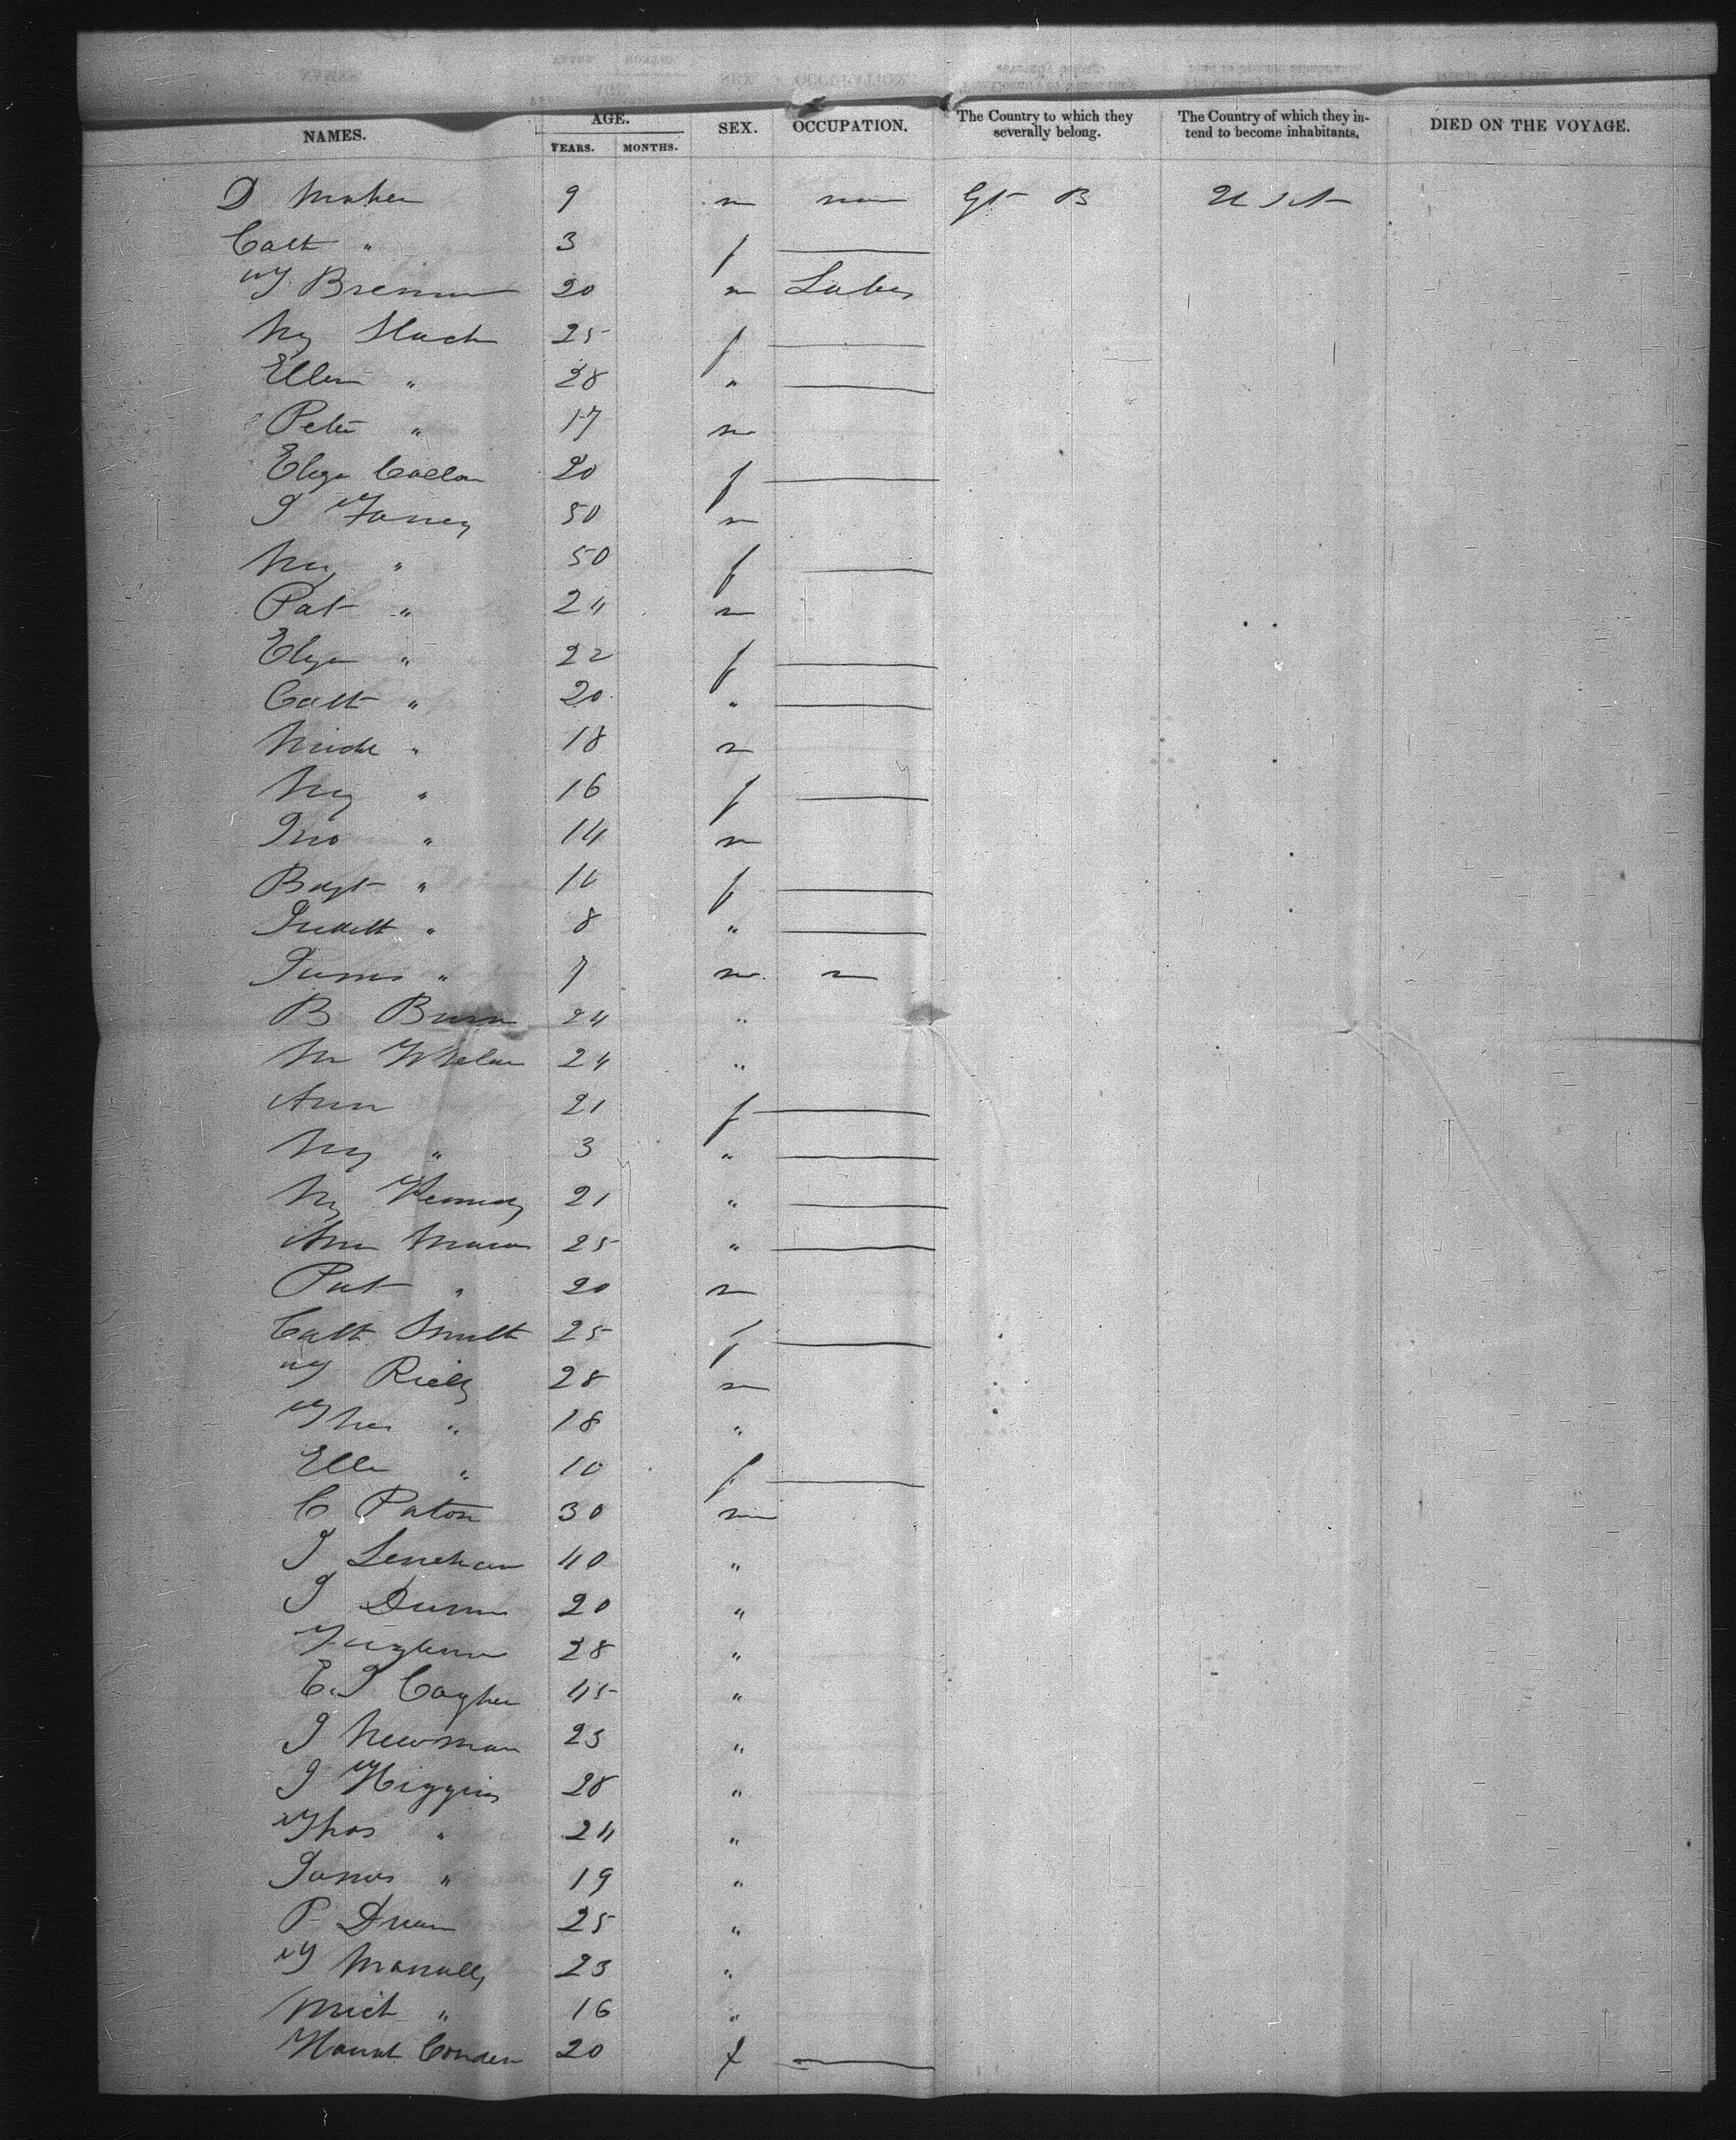 NAMES. AGE. YEARS. MONTHS. SEX. OCCUPATION. The Country to which they severally belong. The Country of which they intend to become inhabitants. DIED ON THE VOYAGE.
D Maher 9 m Gt B U S A
Cath " 3 f
T Brennan 20 m Labor
My Mack 25 f
Ellen " 28 "
Peter " 17 m
Eliza Callan 20 f
J Farrey 50 m
My " 50 f
Pat " 24 m
Eliza " 22 f
Cath " 20 "
Mich " 18 m
My " 16 f
Jno " 14 m
Bdgt " 10 f
Judith " 8 "
James " 7 m
B Burn 24 "
M Whelan 24 "
Ann 21 f
My " 3 "
My Kennedy 21 "
Ann 25 "
Pat " 20 m
Cath Smith 25 f
T Rielly 28 m
Thos " 18 "
Ellen " 10 f
C Paton 30 m
J Lenehan 40 "
J Dunn 20 "
28 "
E. J Caghen 45 "
J Newman 23 "
J Higgins 28 "
Thos " 24 "
James " 19 "
P 25 "
T Manally 23 "
Mich " 16 "
Hanah Conden 20 f